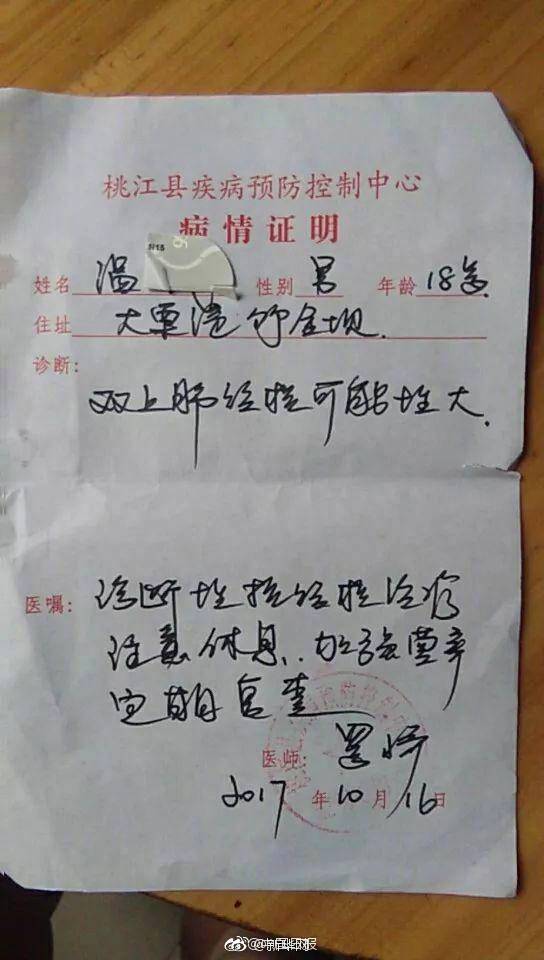 桃江县疾病预防控制中心
病情证明
姓名 温 性别 男 年龄 18岁
住址 大栗港竹金坝
诊断:
双上肺结核可能性大.
医嘱: 诊断性抗结核治疗
注意休息. 加强营养
定期复查
医师:
2017年10月16日